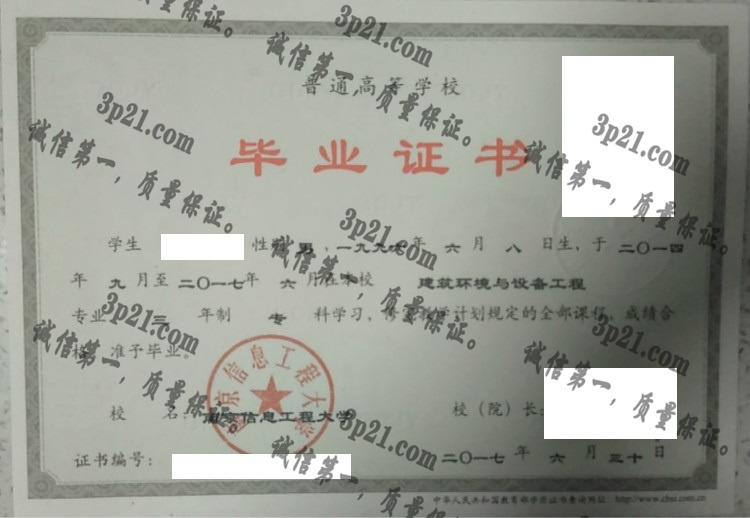 普通高等学校
毕业证书
学生 性别 男，一九九 年 六 月 八 日生，于 二〇一四
年 九 月至 二〇一七 年 六 月在本校 建筑环境与设备工程
专业 三 年制 专 科学习，修完教学计划规定的全部课程，成绩合
格，准予毕业。
南京信息工程大学
校 名：南京信息工程大学 校（院）长：
证书编号： 二〇一七 年 六 月 三十 日
中华人民共和国教育部学历证书查询网址：http://www.chsi.com.cn
3p21.com
诚信第一，质量保证。
3p21.com
诚信第一，质量保证。
3p21.com
诚信第一，质量保证。
3p21.com
诚信第一，质量保证。
3p21.com
诚信第一，质量保证。
3p21.com
诚信第一，质量保证。
3p21.com
诚信第一，质量保证。
3p21.com
诚信第一，质量保证。